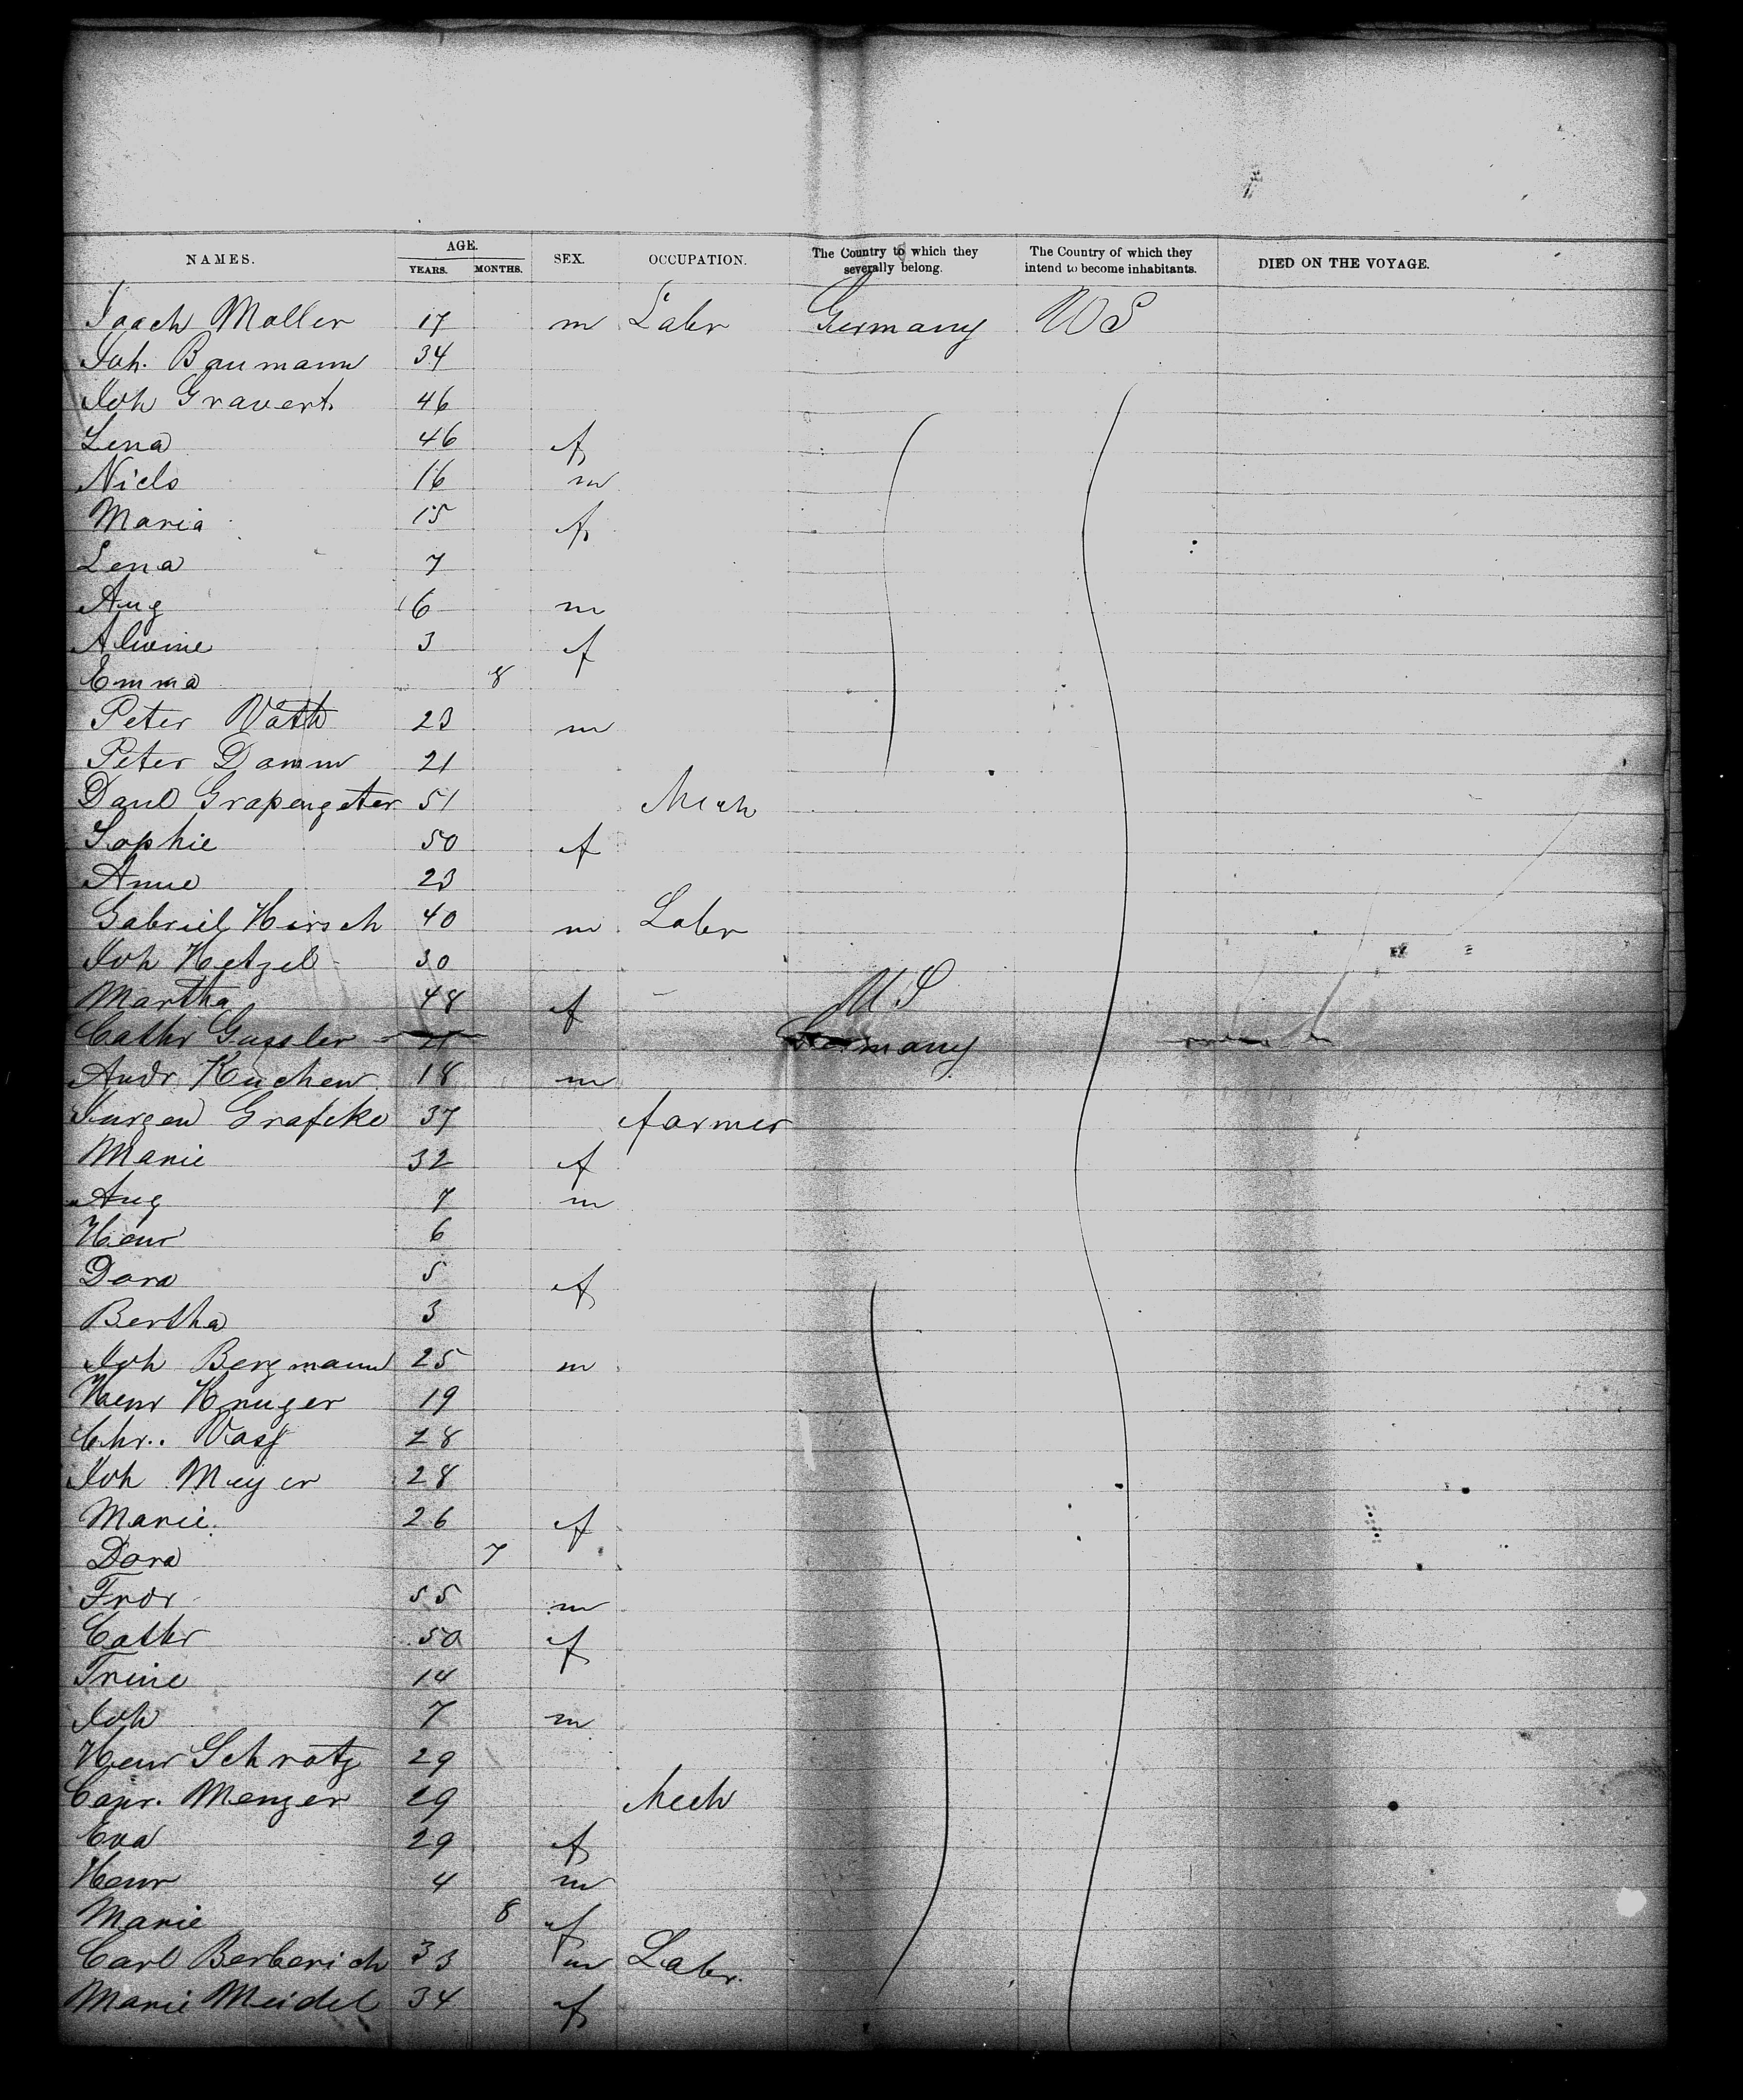 NAMES. AGE. YEARS. MONTHS. SEX. OCCUPATION. The Country to which they severally belong. The Country of which they intend to become inhabitants. DIED ON THE VOYAGE.
Joach Moller 17 m Labr Germany US
Joh. Baumann 34
Joh Gravert 46
Lena 46 f
Niels 16 m
Maria 15 f
Lena 7
Aug 6 m
Alwine 3 f
Emma 8
Peter Vath 23 m
Peter Damm 21
Danl Grapengeter 51 Mech
Sophie 50 f
Anne 23
Gabriel Hirsch 40 m Labr
Joh Hetzel 30
Martha 48 f US
Cathr Gassler 21 Germany
Andr Kuchen 18 m
Jurgen Grafcke 37 farmer
Marie 32 f
Aug 7 m
Henr 6
Dora 5 f
Bertha 3
Joh Bergmann 25 m
Henr Kruger 19
Chr. Vass 28
Joh Meyer 28
Marie 26 f
Dora 7
Frdr 55 m
Cathr 50 f
Trine 14
Joh 7 m
Henr Schrotz 29
Conr. Menger 29 Mech
Eva 29 f
Henr 4 m
Marie 8 f
Carl Berberich 33 m Labr.
Marie Meidel 34 f